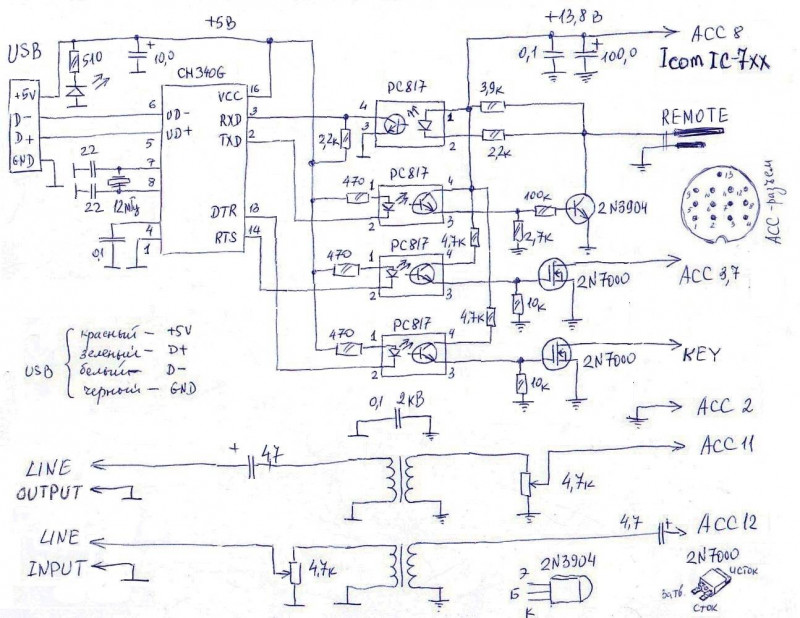 +5В
+13,8 В
ACC 8
Icom IC-7xx
USB
510
+
10,0
0,1
+
100,0
CH340G
PC817
+5V
D-
D+
GND
16
VCC
6
UD-
5
UD+
3
RXD
2
TXD
4
3
1
2
3,9к
2,2к
2,2к
REMOTE
22
22
12мГц
7
8
0,1
4
1
DTR
13
RTS
14
470
PC817
1
2
4
3
100к
2,7к
2N3904
4,7к
13
ACC-разъем
470
PC817
1
2
4
3
10к
2N7000
ACC 3,7
4,7к
470
PC817
1
2
4
3
10к
2N7000
KEY
USB
красный — +5V
зеленый — D+
белый — D-
черный — GND
0,1
2кВ
ACC 2
LINE
OUTPUT
+
4,7
4,7к
ACC 11
LINE
INPUT
4,7к
4,7
+
ACC12
2N3904
Э
Б
К
2N7000
исток
затв.
сток